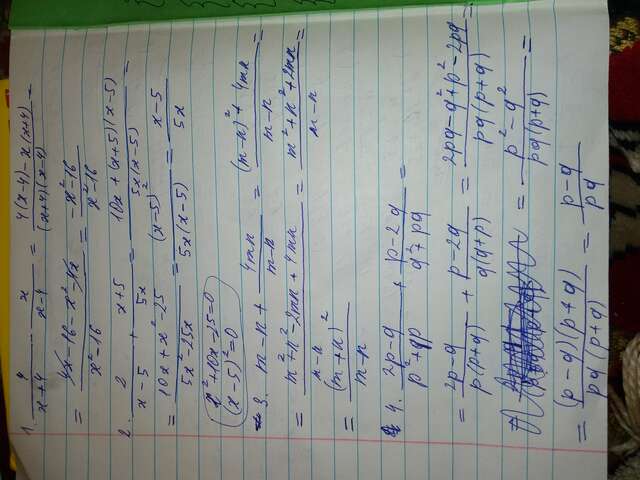 1. 4/(x+4) - x/(x-4) = (4(x-4)-x(x+4))/((x+4)(x-4)) =
= (4x-16-x²-4x)/(x²-16) = (-x²-16)/(x²-16)
2. 2/(x-5) + (x+5)/5x = (10x+(x+5)(x-5))/(5x(x-5)) =
= (10x+x²-25)/(5x²-25x) = (x-5)²/(5x(x-5)) = (x-5)/5x
x²+10x-25=0
(x-5)²=0
3. m-n+ 4mn/(m-n) = ((m-n)²+4mn)/(m-n) =
= (m²+n²-2mn+4mn)/(m-n) = (m²+n²+2mn)/(m-n) =
= (m+n)²/(m-n)
4. (2p-q)/(p²+qp) + (p-2q)/(q²+pq) =
= (2p-q)/(p(p+q)) + (p-2q)/(q(q+p)) = (2pq-q²+p²-2pq)/(pq(p+q)) =
= (p²-q²)/(pq(p+q)) =
= ((p-q)(p+q))/(pq(p+q)) = (p-q)/pq